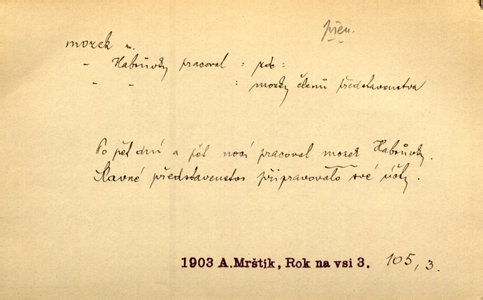 přen.
mozek m.
- Habrůvky pracoval : pdo:
- - : mozky členů představenstva
Po pět dní a pět nocí pracoval mozek Habrůvky.
Slavné představenstvo připravovalo své účty.
1903 A.Mrštík, Rok na vsi 3. 105, 3.